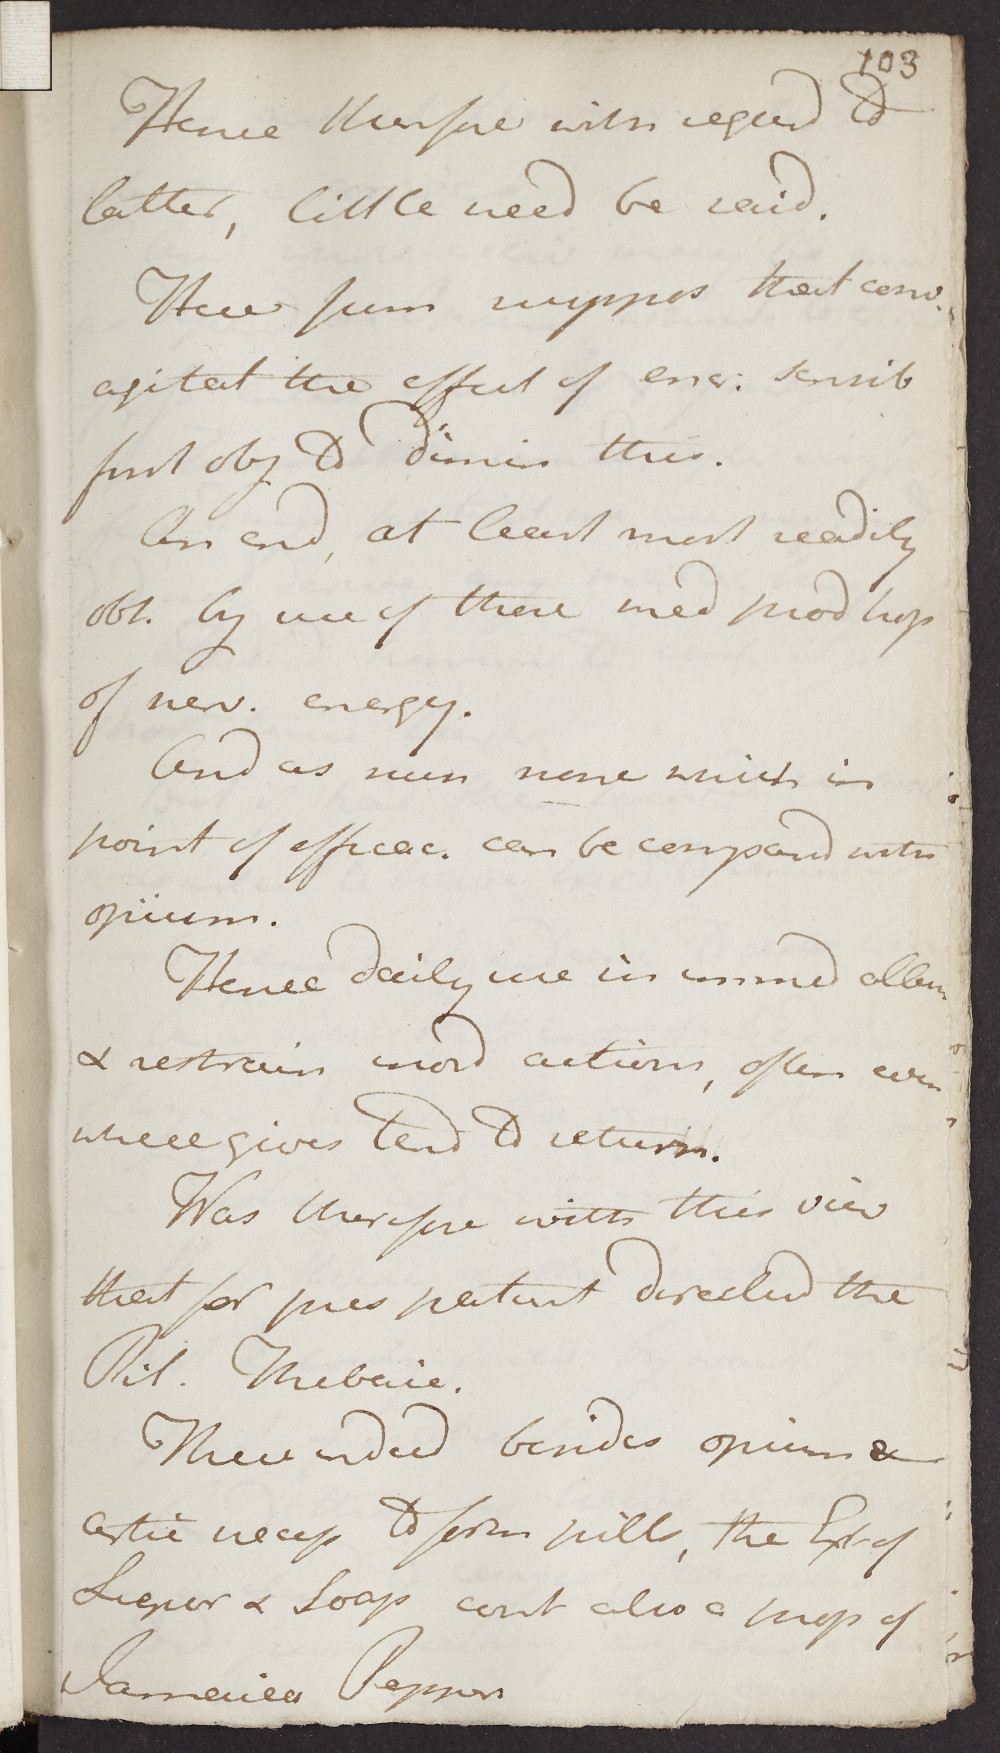 103
Hence therefore with regard to
latter, little need be said.
Here from suppos that conv.
agitat the effect of encr. sensib
first obj to dimin this.
An end, at least most readily
obt. by use of these med prod
of nerv. energy.
And as num none which in
point of efficac. can be compared with
opium.
Hence daily use in immed allev
& restrain mord actions, often even
where gives tend to return.
Was therefore with this view
that for pres patient directed the
Pil. Thebaic.
These indeed besides opium &
artic necess to form pills, the Ext of
Liquor & Soap cont also a prop of
Jamaica Pepper